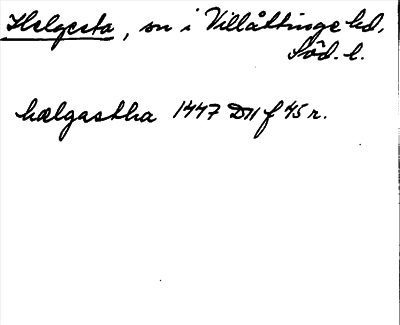 Helgesta, sn i Villåttinge hd,
Söd. l.
hælgastha 1447 D11 f 45 r.